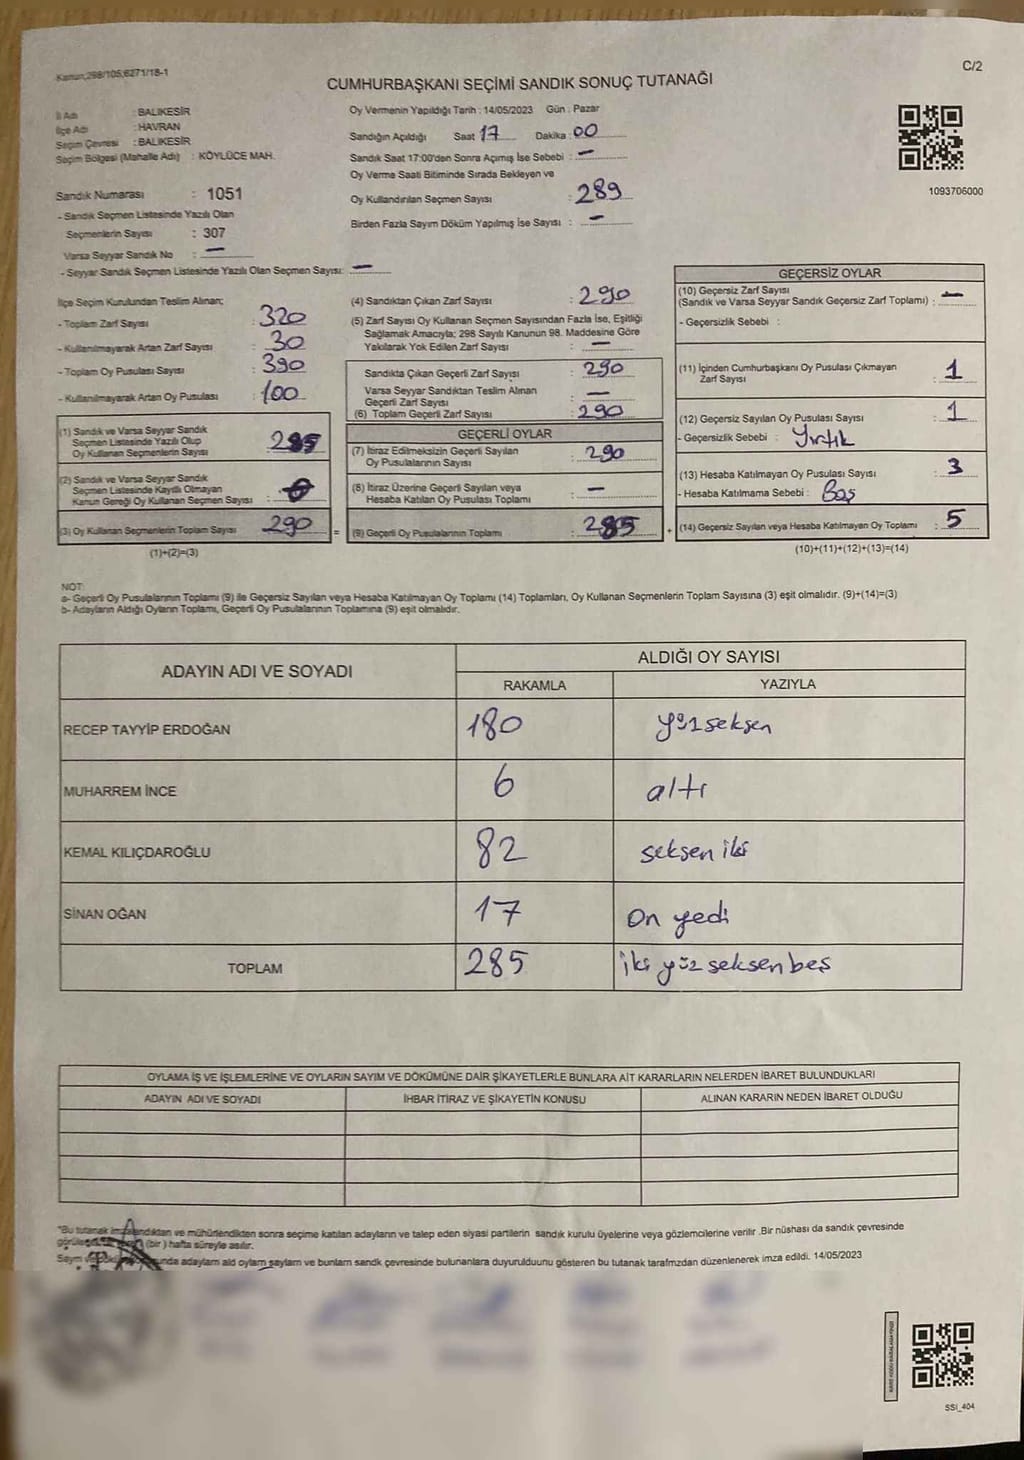 Kanun;298/105;6271/18-1
C/2
CUMHURBAŞKANI SEÇİMİ SANDIK SONUÇ TUTANAĞI
İl Adı : BALIKESİR
İlçe Adı : HAVRAN
Seçim Çevresi : BALIKESİR
Seçim Bölgesi (Mahalle Adı) : KÖYLÜCE MAH.
Sandık Numarası : 1051
- Sandık Seçmen Listesinde Yazılı Olan
Seçmenlerin Sayısı : 307
Varsa Seyyar Sandık No : —
- Seyyar Sandık Seçmen Listesinde Yazılı Olan Seçmen Sayısı: —
Oy Vermenin Yapıldığı Tarih : 14/05/2023 Gün : Pazar
Sandığın Açıldığı Saat 17 Dakika : 00
Sandık Saat 17:00'den Sonra Açımış İse Sebebi : —
Oy Verme Saati Bitiminde Sırada Bekleyen ve
Oy Kullandırılan Seçmen Sayısı : 289
Birden Fazla Sayım Döküm Yapılmış İse Sayısı : —
1093706000
İlçe Seçim Kurulundan Teslim Alınan;
- Toplam Zarf Sayısı : 320
- Kullanılmayarak Artan Zarf Sayısı : 30
- Toplam Oy Pusulası Sayısı : 390
- Kullanılmayarak Artan Oy Pusulası : 100
(1) Sandık ve Varsa Seyyar Sandık
Seçmen Listesinde Yazılı Olup
Oy Kullanan Seçmenlerin Sayısı :
(2) Sandık ve Varsa Seyyar Sandık
Seçmen Listesinde Kayıtlı Olmayan
Kanun Gereği Oy Kullanan Seçmen Sayısı :
(3) Oy Kullanan Seçmenlerin Toplam Sayısı : 290 =
(1)+(2)=(3)
(4) Sandıktan Çıkan Zarf Sayısı : 290
(5) Zarf Sayısı Oy Kullanan Seçmen Sayısından Fazla İse, Eşitliği
Sağlamak Amacıyla; 298 Sayılı Kanunun 98. Maddesine Göre
Yakılarak Yok Edilen Zarf Sayısı : —
Sandıkta Çıkan Geçerli Zarf Sayısı : 290
Varsa Seyyar Sandıktan Teslim Alınan
Geçerli Zarf Sayısı : —
(6) Toplam Geçerli Zarf Sayısı : 290
GEÇERLİ OYLAR
(7) İtiraz Edilmeksizin Geçerli Sayılan
Oy Pusulalarının Sayısı : 290
(8) İtiraz Üzerine Geçerli Sayılan veya
Hesaba Katılan Oy Pusulası Toplamı : —
(9) Geçerli Oy Pusulalarının Toplamı : 285 +
GEÇERSİZ OYLAR
(10) Geçersiz Zarf Sayısı
(Sandık ve Varsa Seyyar Sandık Geçersiz Zarf Toplamı) : —
- Geçersizlik Sebebi :
(11) İçinden Cumhurbaşkanı Oy Pusulası Çıkmayan
Zarf Sayısı : 1
(12) Geçersiz Sayılan Oy Pusulası Sayısı : 1
- Geçersizlik Sebebi : Yırtık
(13) Hesaba Katılmayan Oy Pusulası Sayısı : 3
- Hesaba Katılmama Sebebi : Boş
(14) Geçersiz Sayılan veya Hesaba Katılmayan Oy Toplamı : 5
(10)+(11)+(12)+(13)=(14)
NOT:
a- Geçerli Oy Pusulalarının Toplamı (9) ile Geçersiz Sayılan veya Hesaba Katılmayan Oy Toplamı (14) Toplamları, Oy Kullanan Seçmenlerin Toplam Sayısına (3) eşit olmalıdır. (9)+(14)=(3)
b- Adayların Aldığı Oyların Toplamı, Geçerli Oy Pusulalarının Toplamına (9) eşit olmalıdır.
ADAYIN ADI VE SOYADI
ALDIĞI OY SAYISI
RAKAMLA YAZIYLA
RECEP TAYYİP ERDOĞAN 180 yüzseksen
MUHARREM İNCE 6 altı
KEMAL KILIÇDAROĞLU 82 seksen iki
SİNAN OĞAN 17 on yedi
TOPLAM 285 iki yüz seksen beş
OYLAMA İŞ VE İŞLEMLERİNE VE OYLARIN SAYIM VE DÖKÜMÜNE DAİR ŞİKAYETLERLE BUNLARA AİT KARARLARIN NELERDEN İBARET BULUNDUKLARI
ADAYIN ADI VE SOYADI İHBAR İTİRAZ VE ŞİKAYETİN KONUSU ALINAN KARARIN NEDEN İBARET OLDUĞU
"Bu tutanak imzalandıktan ve mühürlendikten sonra seçime katılan adayların ve talep eden siyasi partilerin sandık kurulu üyelerine veya gözlemcilerine verilir .Bir nüshası da sandık çevresinde
(bir ) hafta süreyle asılır.
Sayım adaylarn ald oylarn saylarn ve bunlarn sandk çevresinde bulunanlara duyurulduunu gösteren bu tutanak tarafmzdan düzenlenerek imza edildi. 14/05/2023
SSI_404